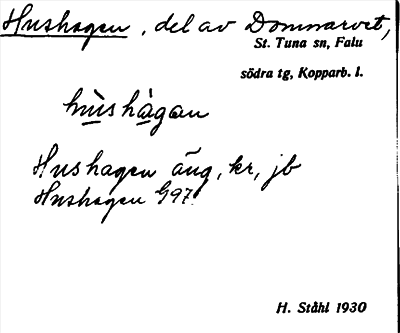 Hushagen, del av Domnarvet,
St. Tuna sn, Falu
södra tg, Kopparb. l.
hùshàgan
Hushagen äng, kr, jb
Hushagen G97
H. Ståhl 1930